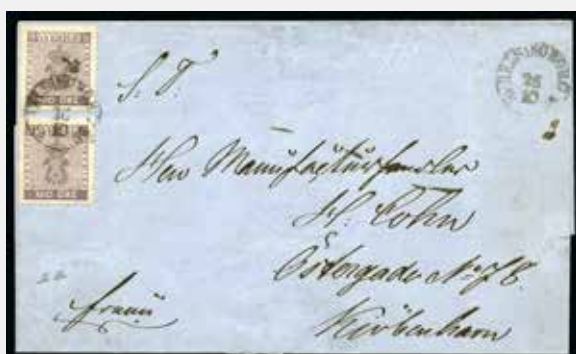 S. T.
Herr Manufacturhandler
H. Cohn
Östergade No 78.
Kiöbenhavn
franco
HELSINGBORG
26
10